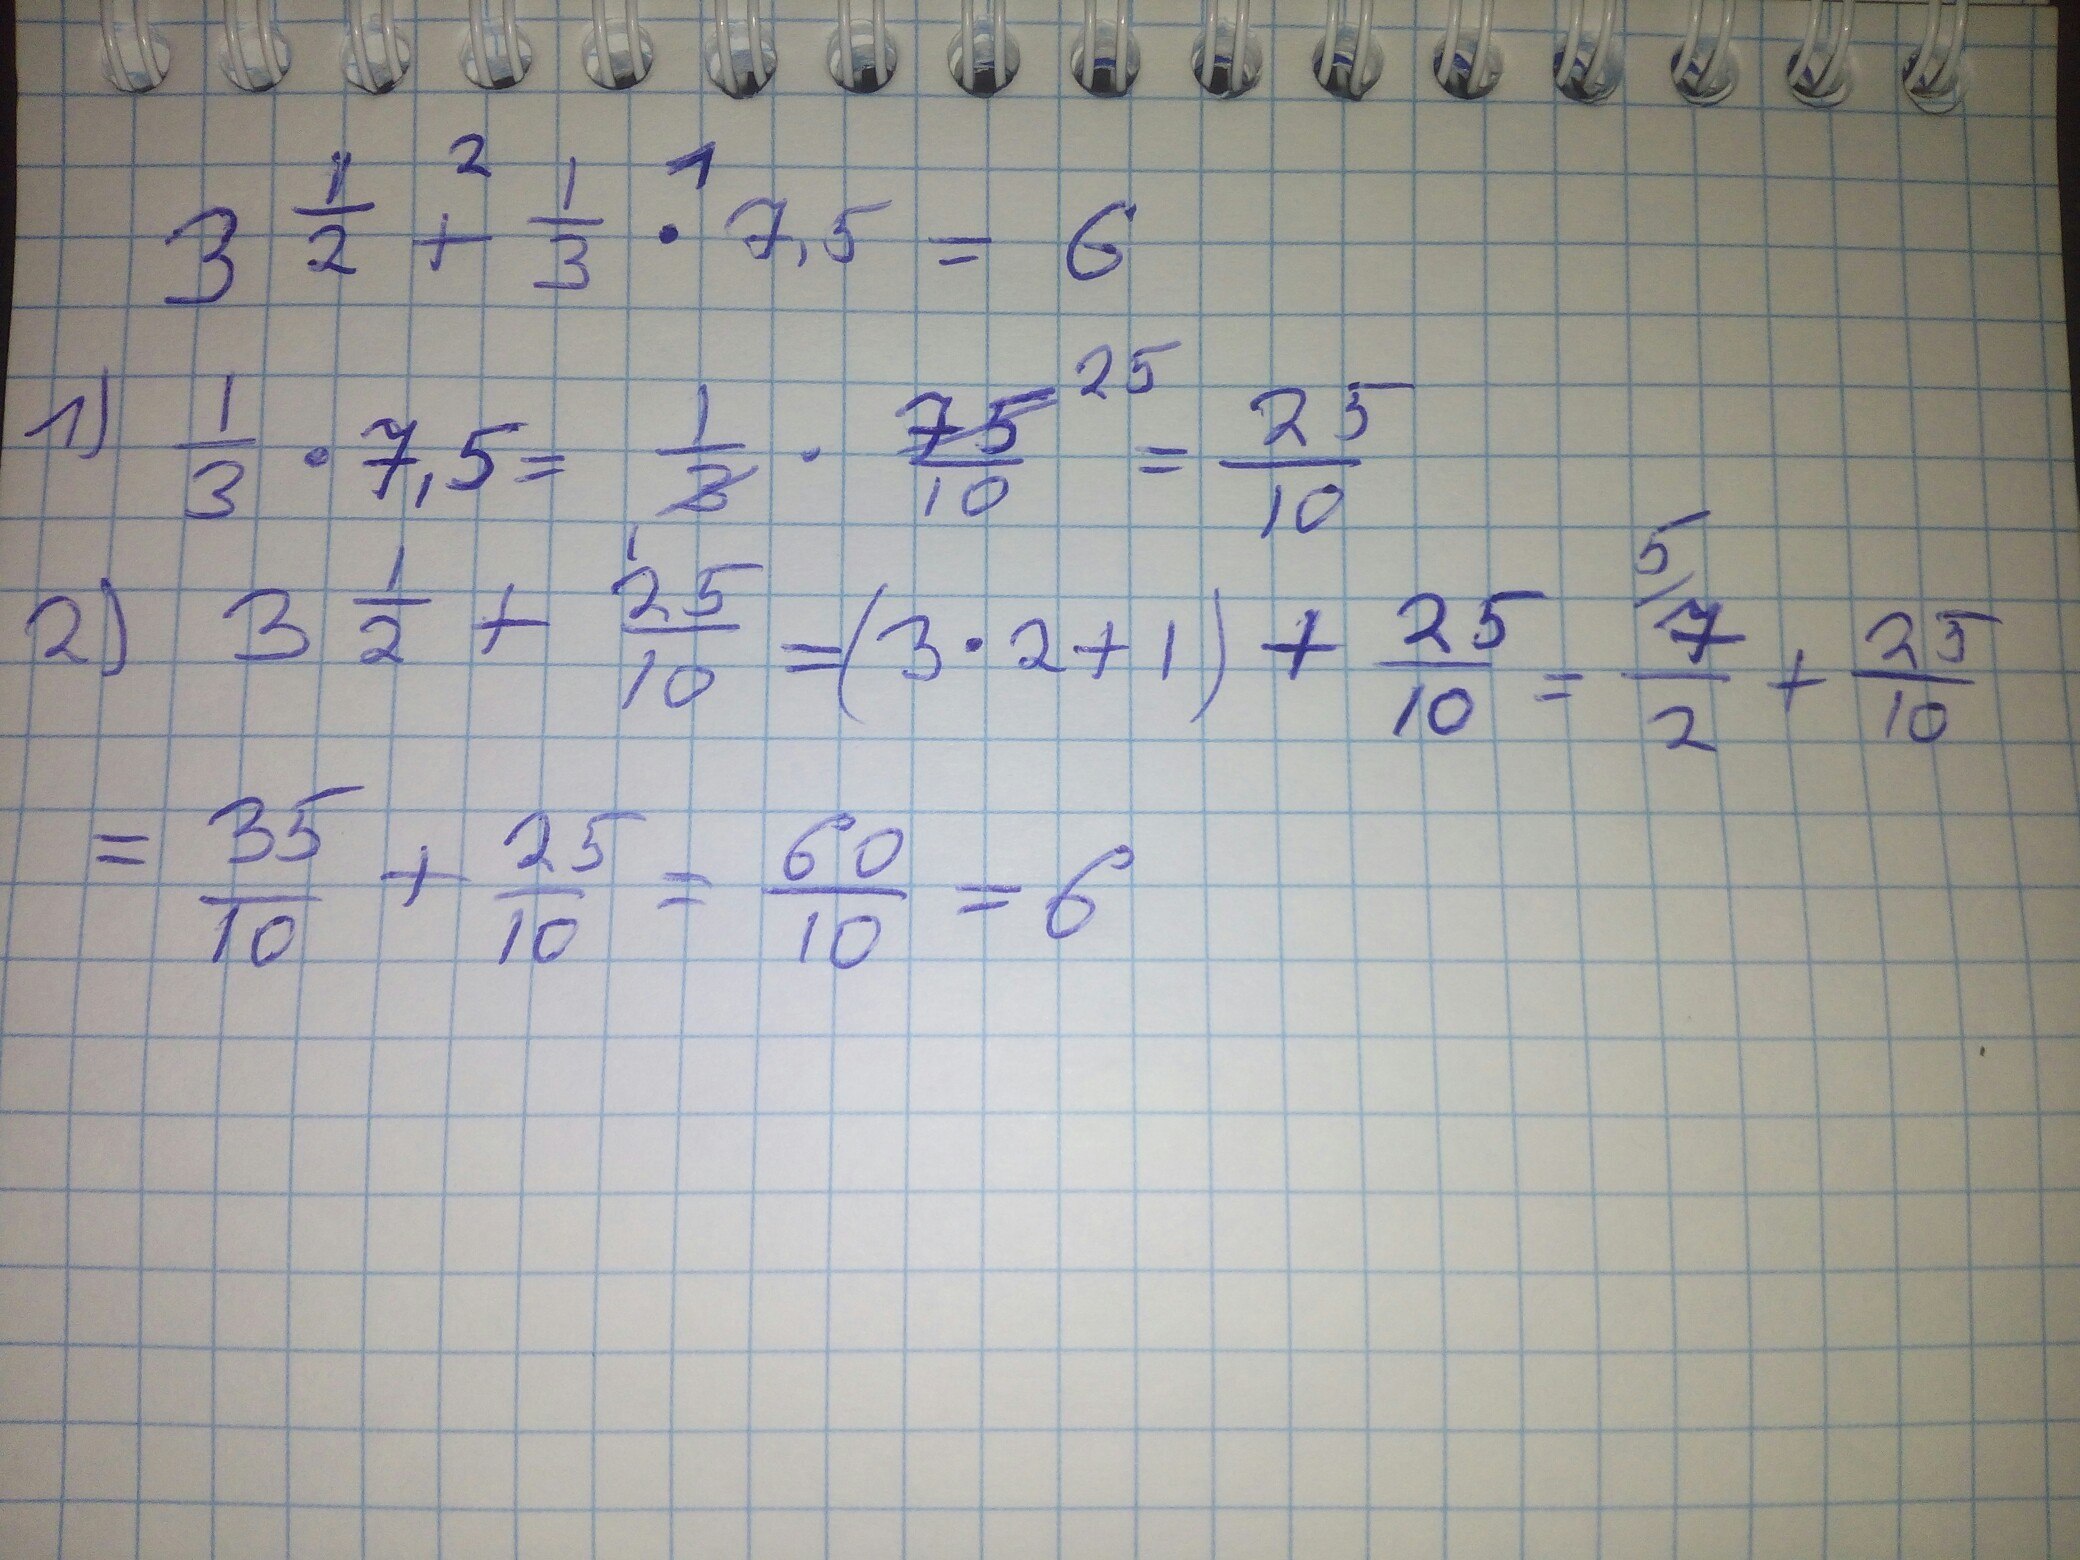 3 1/2 + 1/3 · 7,5 = 6
1) 1/3 · 7,5 = 1/3 · 75/10 = 25/10
2) 3 1/2 + 25/10 = (3·2+1) + 25/10 = 7/2 + 25/10
= 35/10 + 25/10 = 60/10 = 6